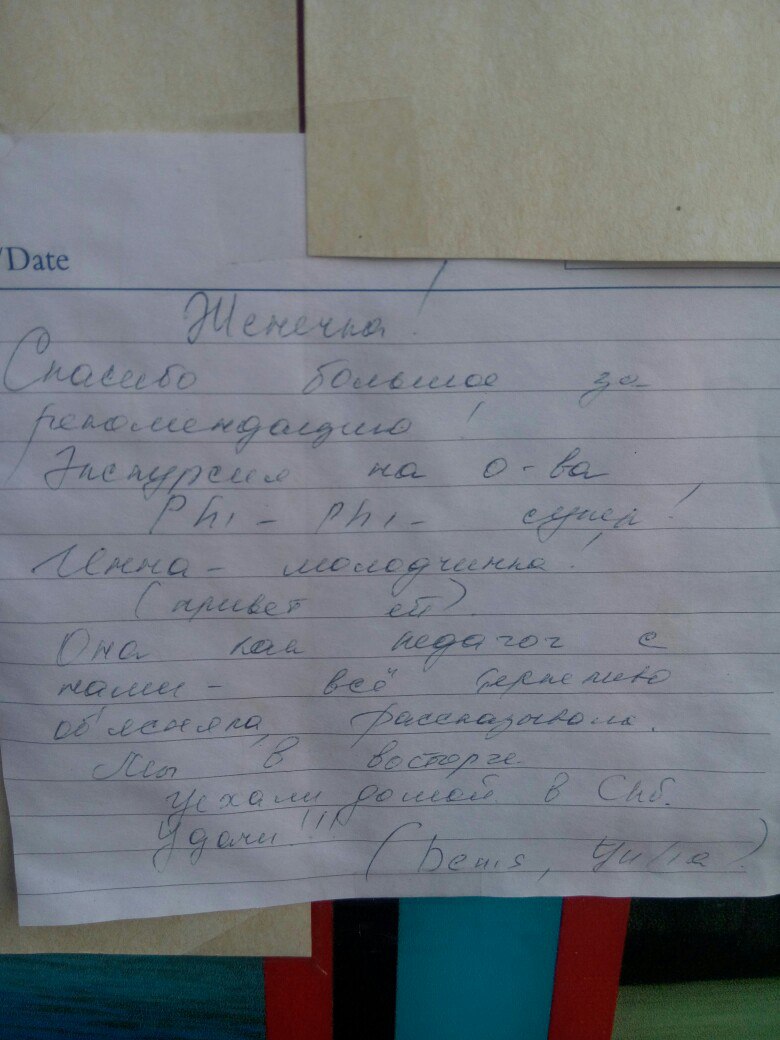 /Date
Женечка!
Спасибо большое за
рекомендацию!
Экскурсия на о-ва
Phi-Phi- супер!
Инна- молодчинка!
(привет ей).
Она как педагог с
нами- всё терпеливо
объясняла, рассказывала.
Мы в восторге
уехали домой в Спб.
Удачи!!!
(Denis, Yulia)